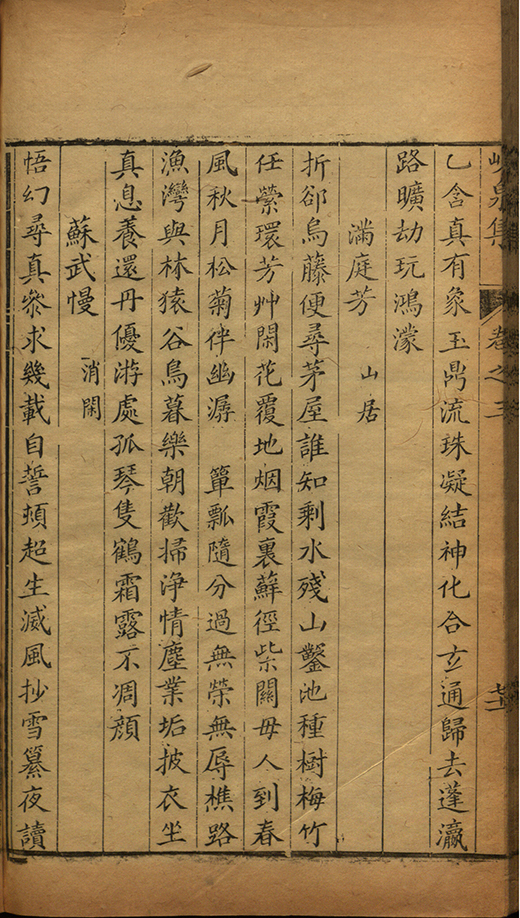 峴泉集 卷之三
乙含真有象玉鼎流珠凝結神化合玄通歸去蓬瀛
路曠劫玩鴻濛
滿庭芳 山居
折郤烏藤便尋茅屋誰知剩水殘山鑿池種樹梅竹
任縈環芳艸閑花覆地烟霞裏蘚徑柴關毋人到春
風秋月松菊伴幽潺 簞瓢隨分過無榮無辱樵路
漁灣與林猿谷鳥暮樂朝歡掃淨情塵業垢披衣坐
真息養還丹優游處孤琴隻鶴霜露不凋顏
蘇武慢 消閑
悟幻尋真叅求幾載自誓頓超生滅風抄雪纂夜讀